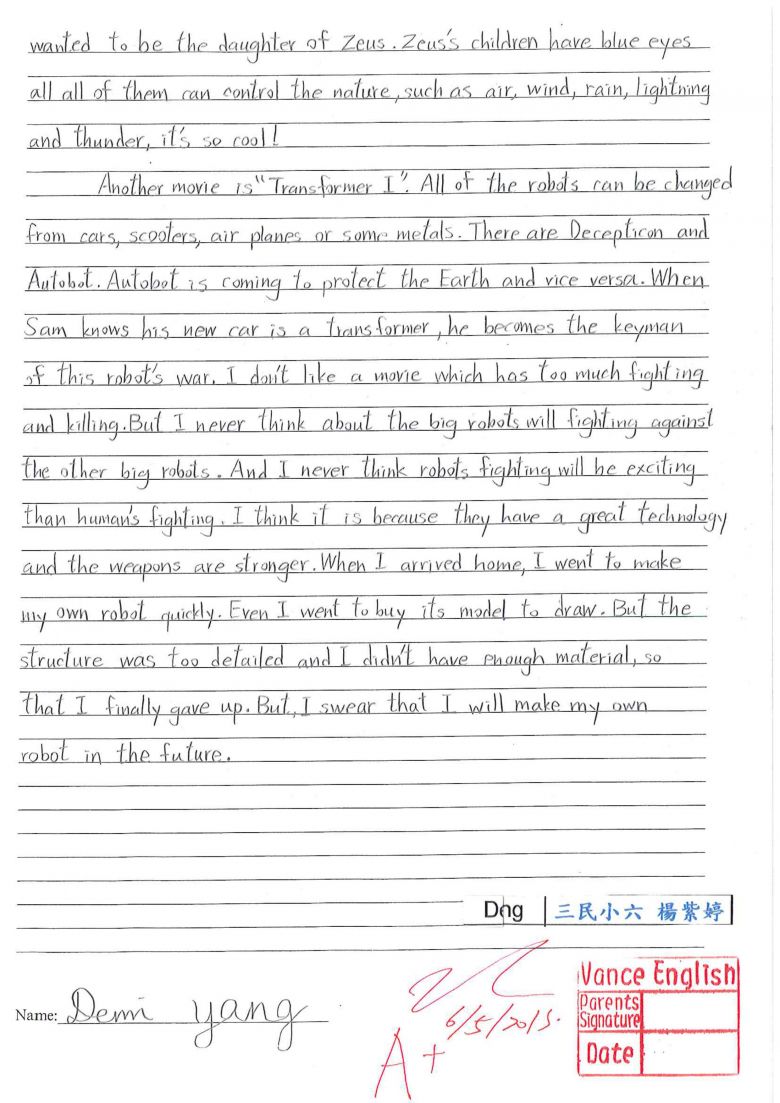 wanted to be the daughter of Zeus. Zeus's children have blue eyes
all all of them can control the nature, such as air, wind, rain, lightning
and thunder, it's so cool!
Another movie is "Transformer I". All of the robots can be changed
from cars, scooters, air planes or some metals. There are Decepticon and
Autobot. Autobot is coming to protect the Earth and vice versa. When
Sam knows his new car is a transformer, he becomes the keyman
of this robot's war. I don't like a movie which has too much fighting
and killing. But I never think about the big robots will fighting against
the other big robots. And I never think robots fighting will be exciting
than human's fighting. I think it is because they have a great technology
and the weapons are stronger. When I arrived home, I went to make
my own robot quickly. Even I went to buy its model to draw. But the
structure was too detailed and I didn't have enough material, so
that I finally gave up. But, I swear that I will make my own
robot in the future.
三民小六 楊紫婷
Vance English
Parents
Signature
Date
Name: Demi yang
6/5/2015.
A+